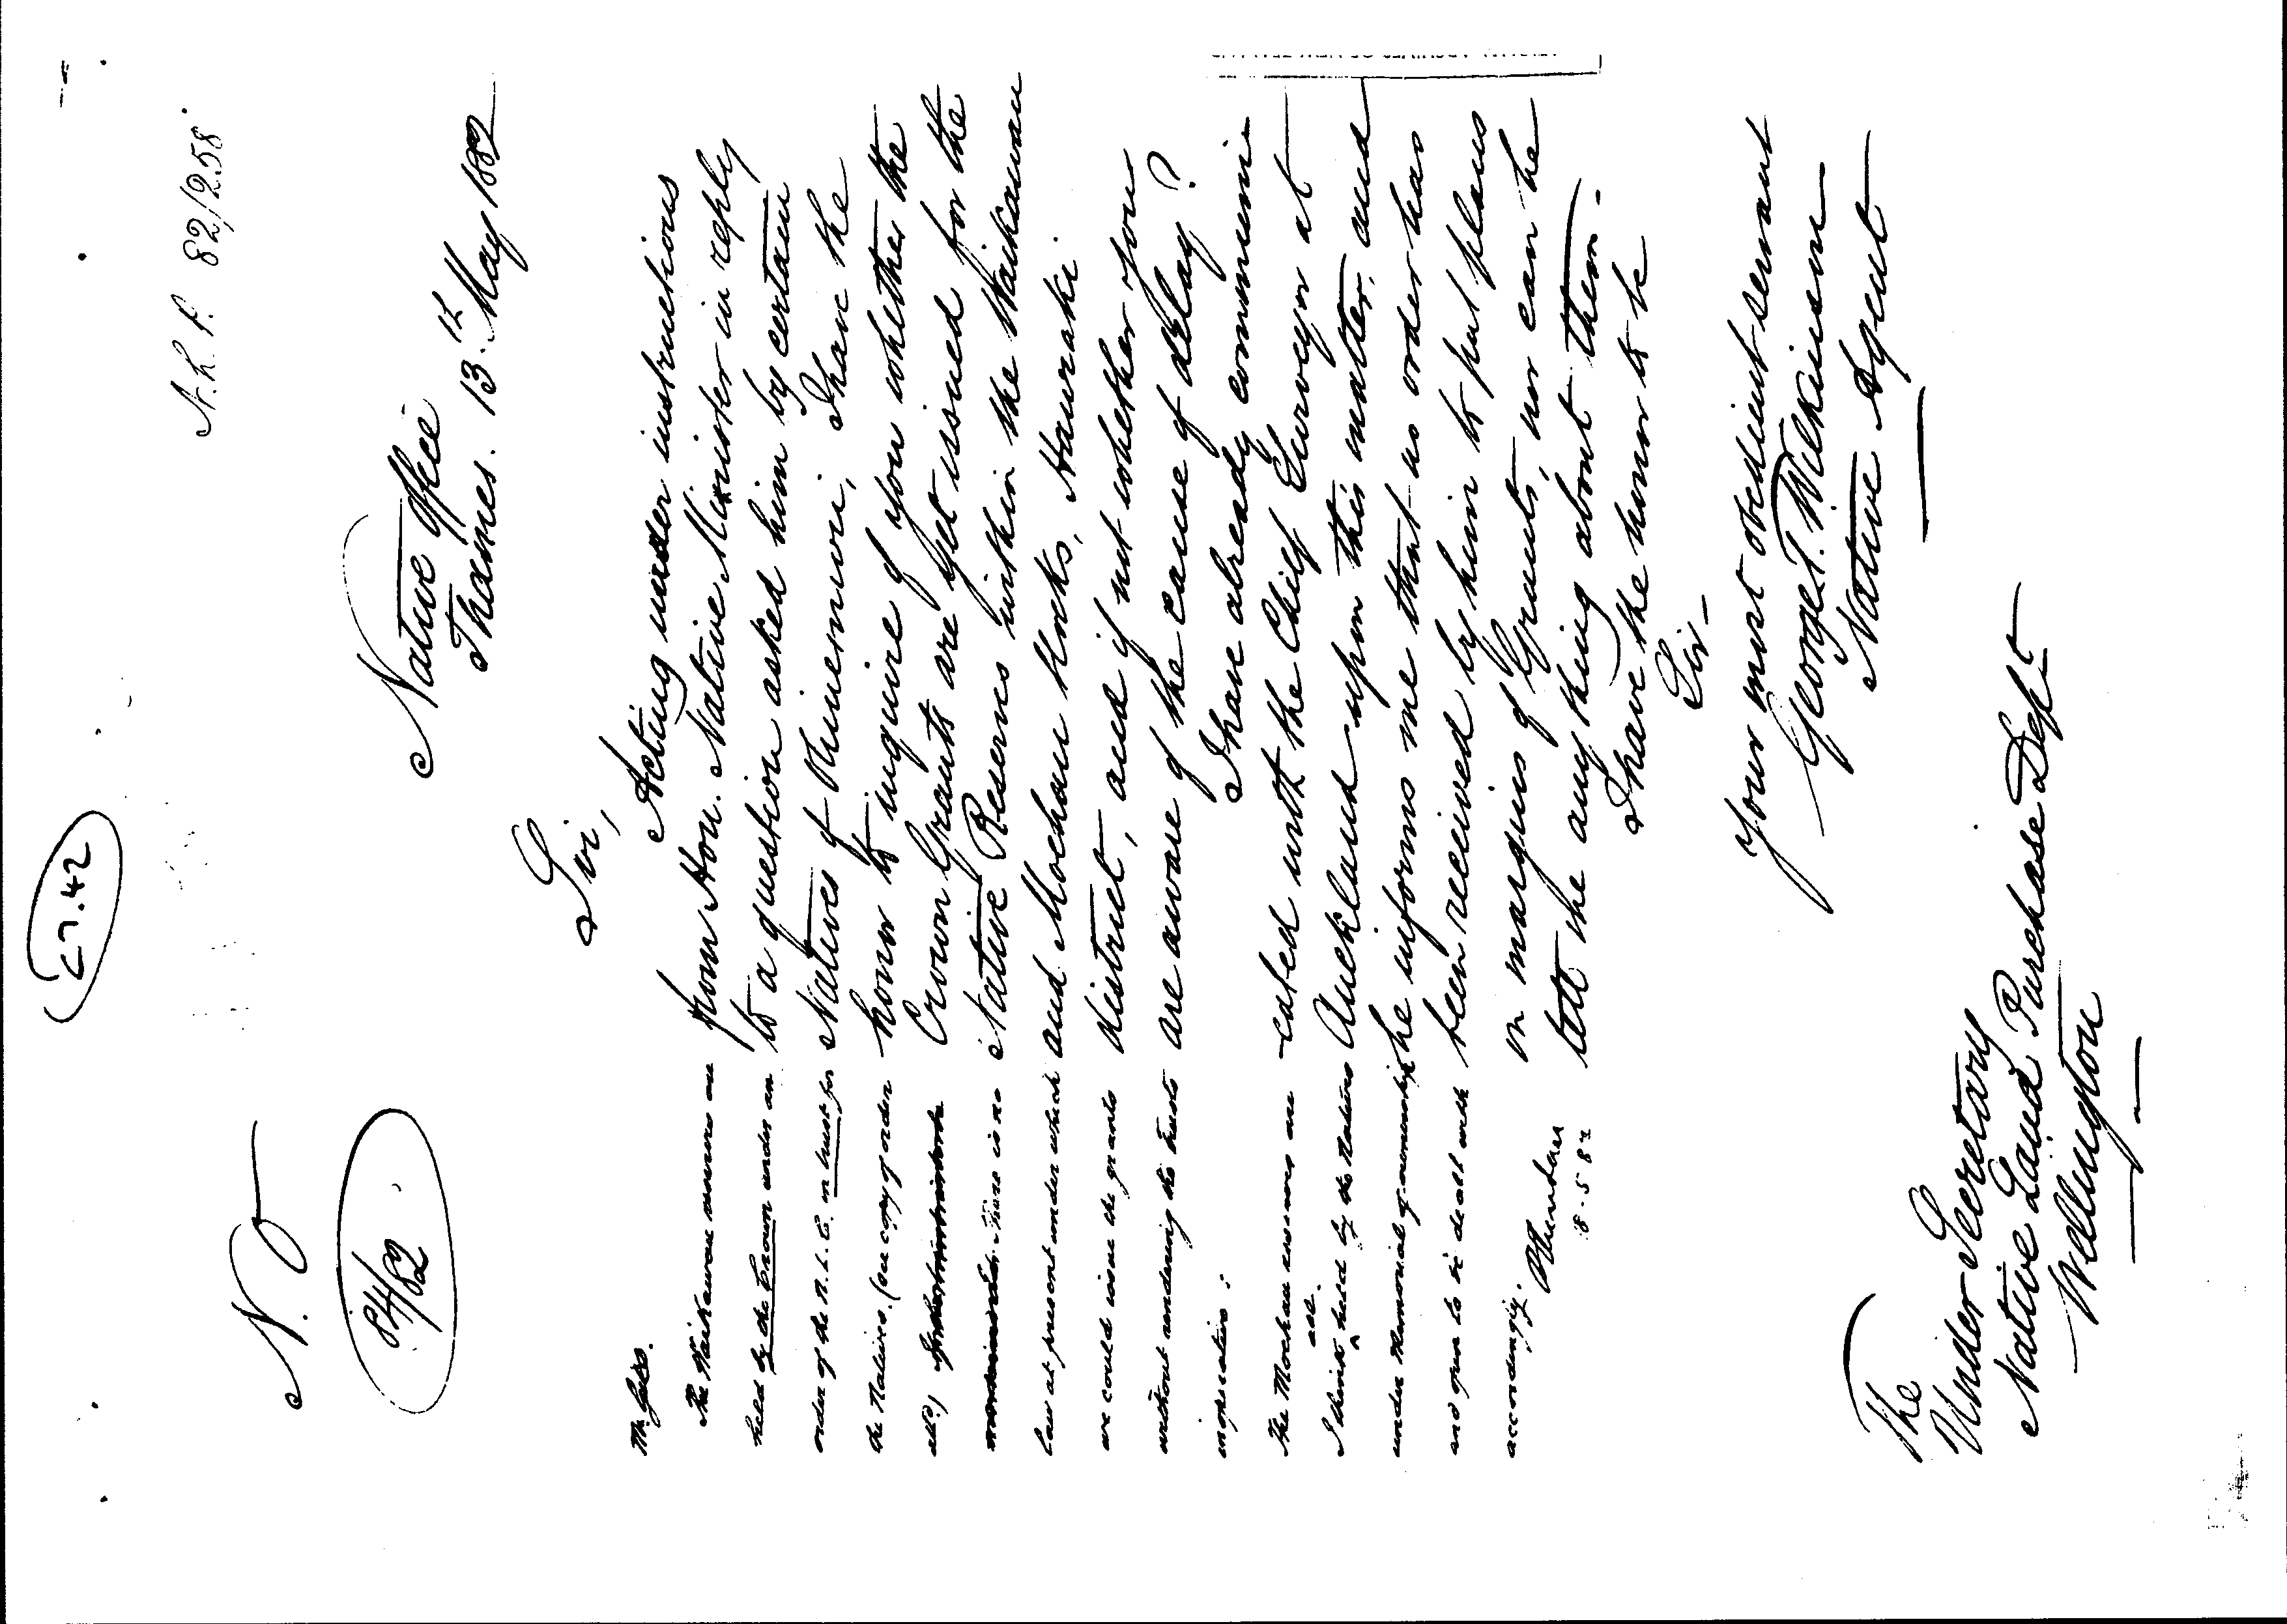 27.42
N.L.P. 82/258
N. O
84/82
Native Office
Thames. 13th May 1882
Sir,
Acting under instructions
from Hon. Native Minister in reply
to a question asked him by certain
Natives of Ohinemuri, I have the
honor to inquire of you whether the
Crown Grants are yet issued for the
Native Reserves within the Waikawau
and Moehau blocks, Hauraki
district, and if not whether you
are aware of the cause of delay?
I have already communi
-cated with the Chief Surveyor at
Auckland upon this matter, and
he informs me that no order has
been received by him to put plans
on margins of Grants, nor can he
tell me any thing about them.
I have the honor to be
Sir
Your most obedient servant
George T. Wilkinson
Native Agent
The
Under Secretary
Native Land Purchase Dept
Wellington
Mr Gill.
The Waikawau reserves are
held by the Crown under an
order of the N.L.C. in trust for
the Natives. (see copy of order
There is no
law at present under which
we could issue the grants
without rendering the trusts
inoperative.
The Moehau reserves are
I think all held by the Natives
under Memorial of ownership
and open to be dealt with
accordingly.
18.5.82